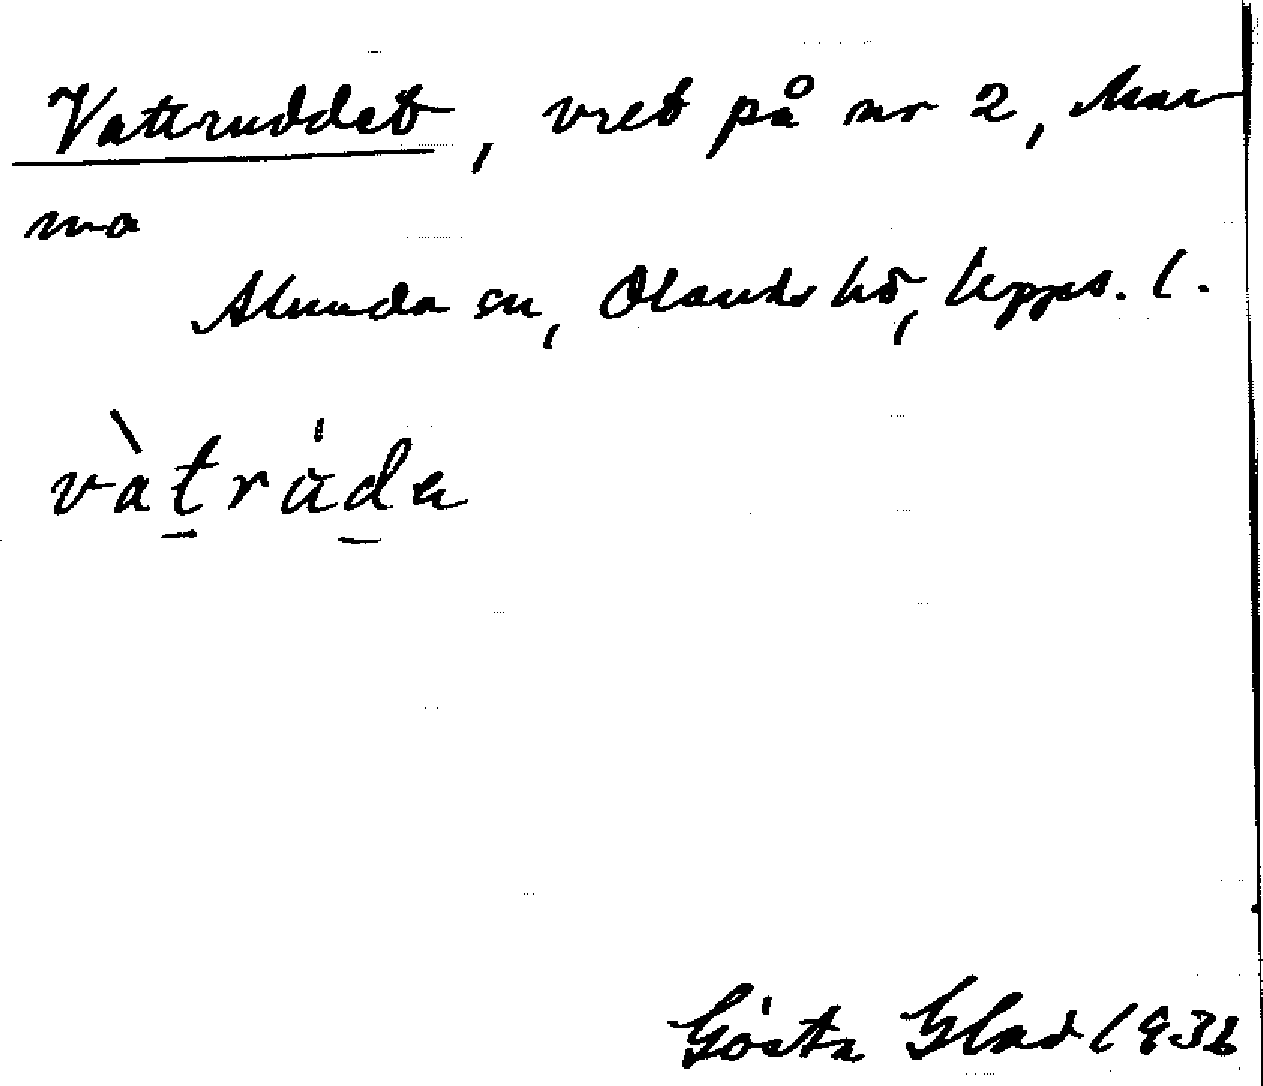 Vattruddet, vret på nr 2, Mar
ma
Alunda sn, Olands hd, Upps. l.
vàt̲rŭd̲a
Gösta Glad 1932